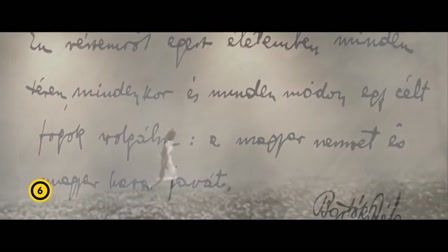 Én részemről egész életemben minden
téren, mindenkor és minden módon egy célt
fogok szolgálni: a magyar nemzet és
magyar haza javát.
6
Bartók Béla